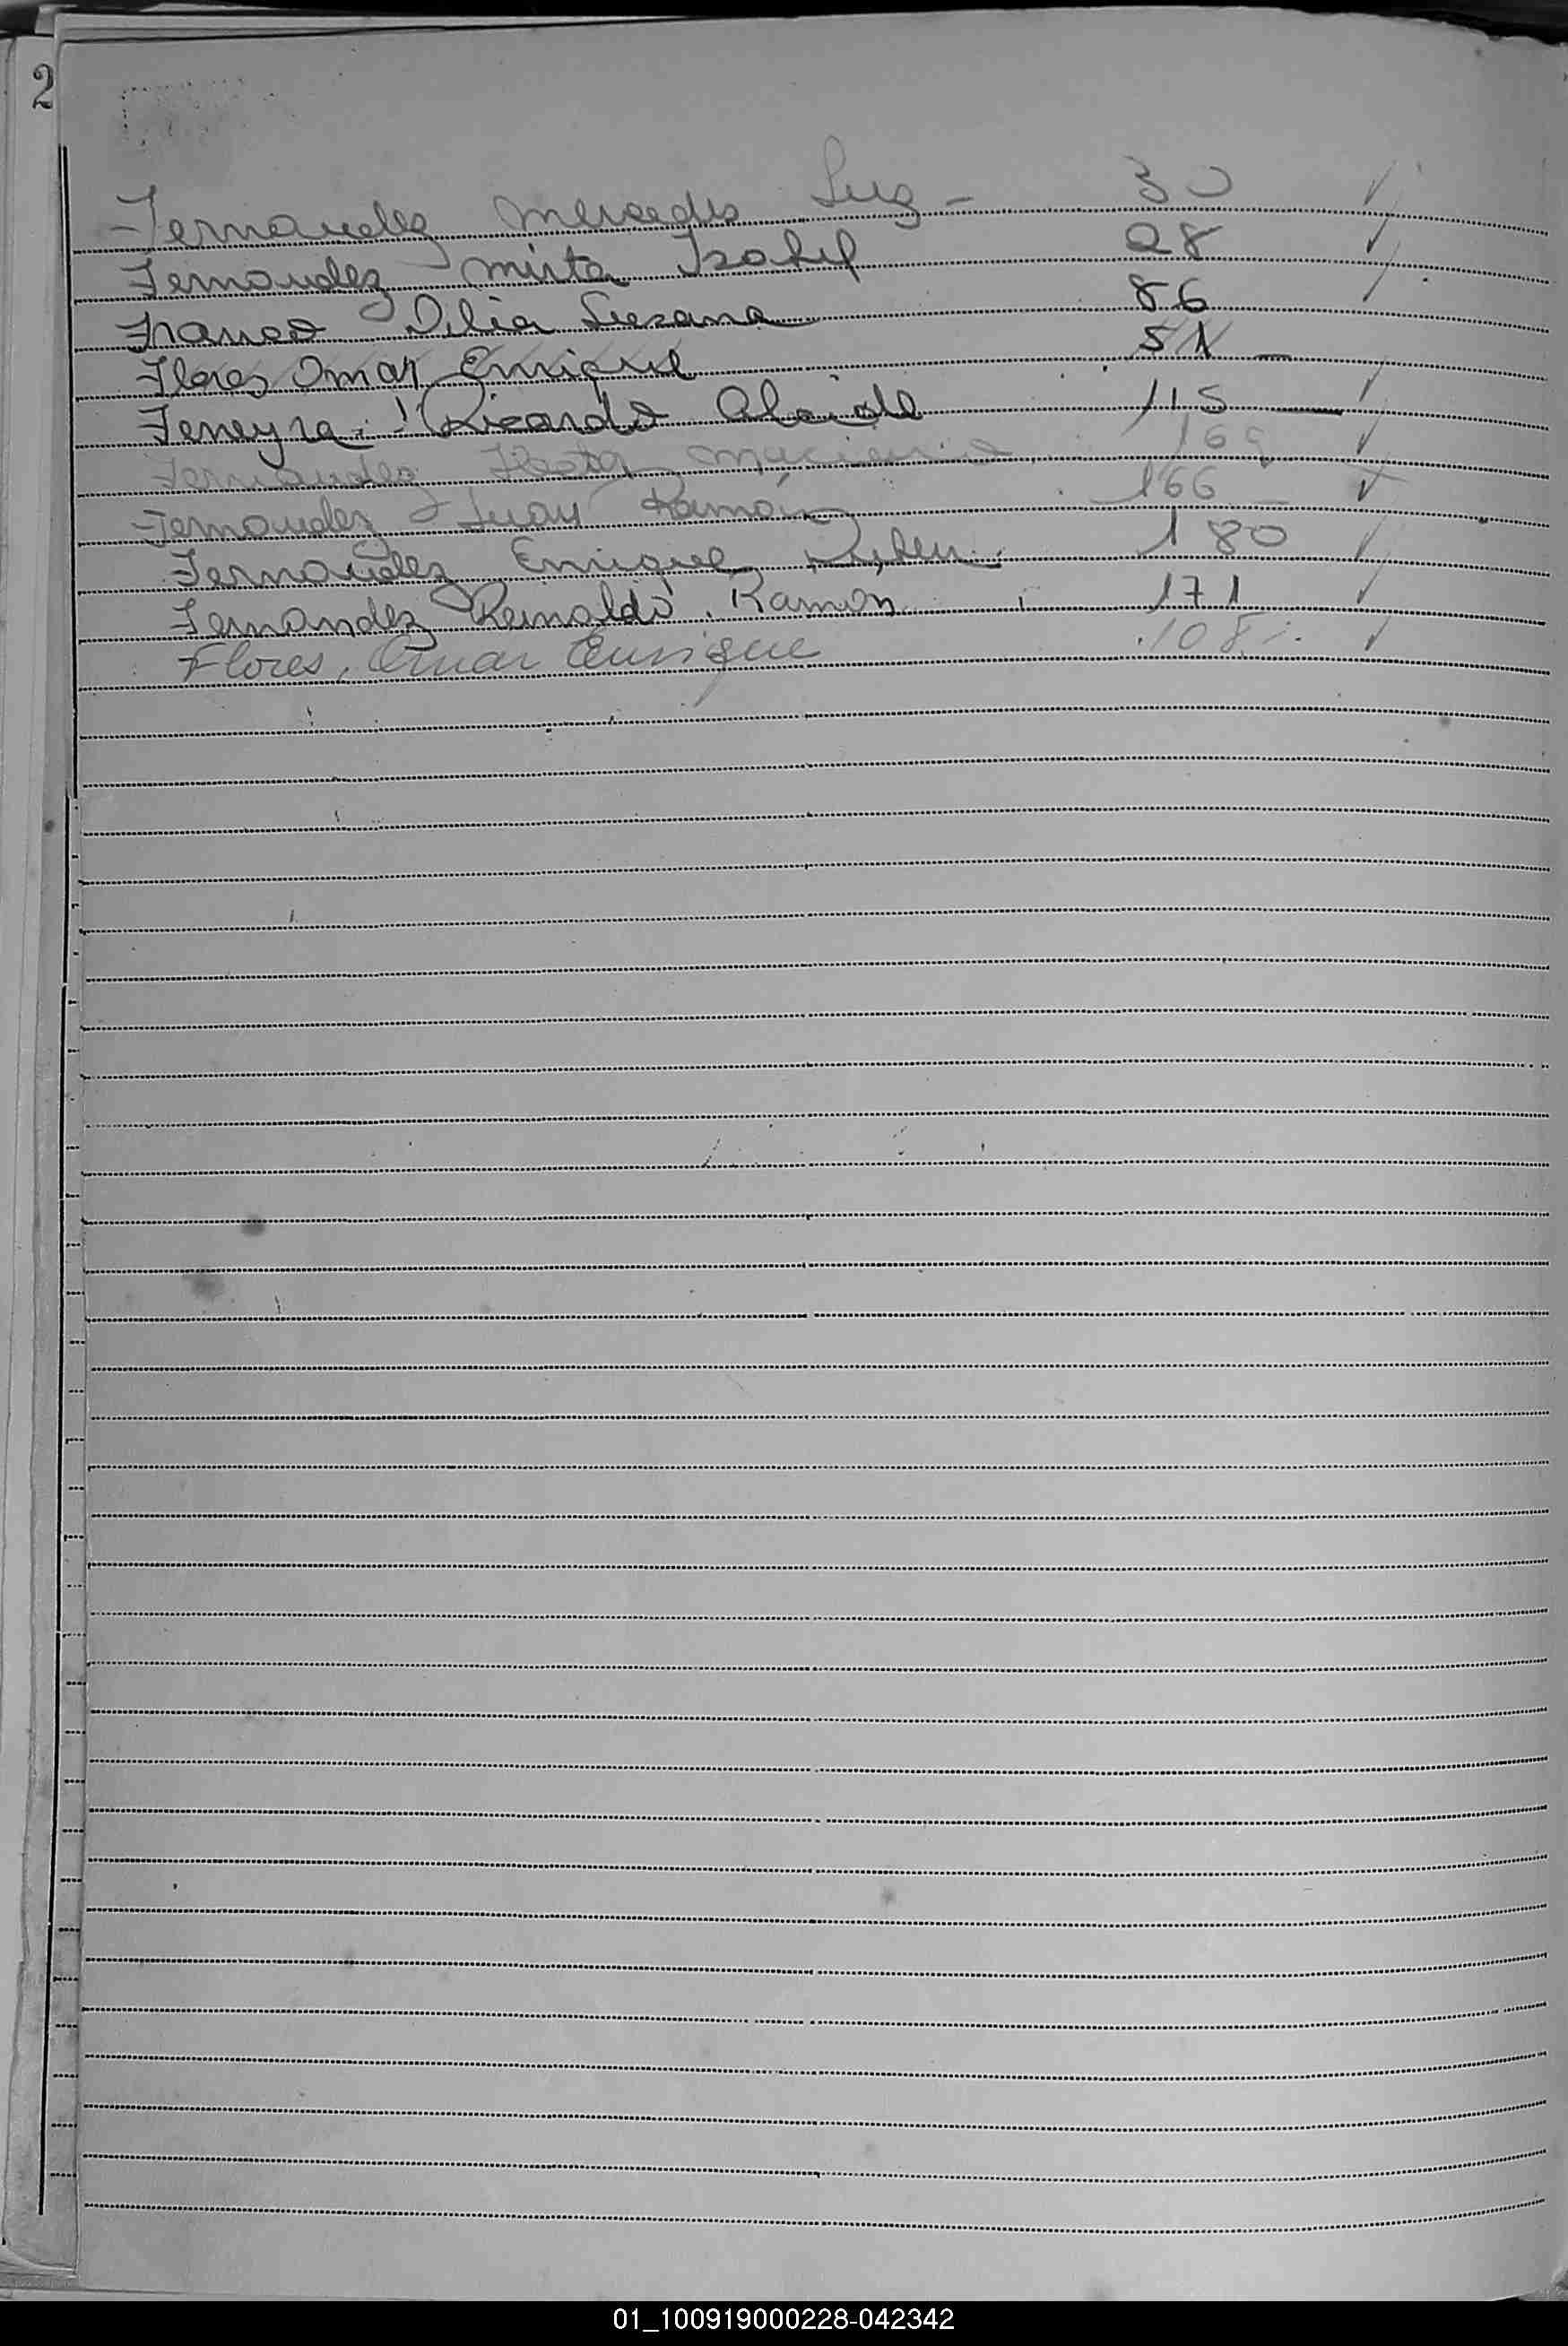 2
Fernandez Mercedes Luz - 30 ✓
Fernandez Mirta Isabel 28 ✓
Franco Delia Susana 86 ✓
Flores Omar Enrique 51 —
Ferreyra, Ricardo Alcide 115 — ✓
Fernandez Hector 169 ✓
Fernandez Juan Ramón 166 — ✓
Fernandez Enrique Ruben 180 ✓
Fernandez Reinaldo Ramon 171 ✓
Flores, Omar Enrique 108 ✓
01_100919000228-042342